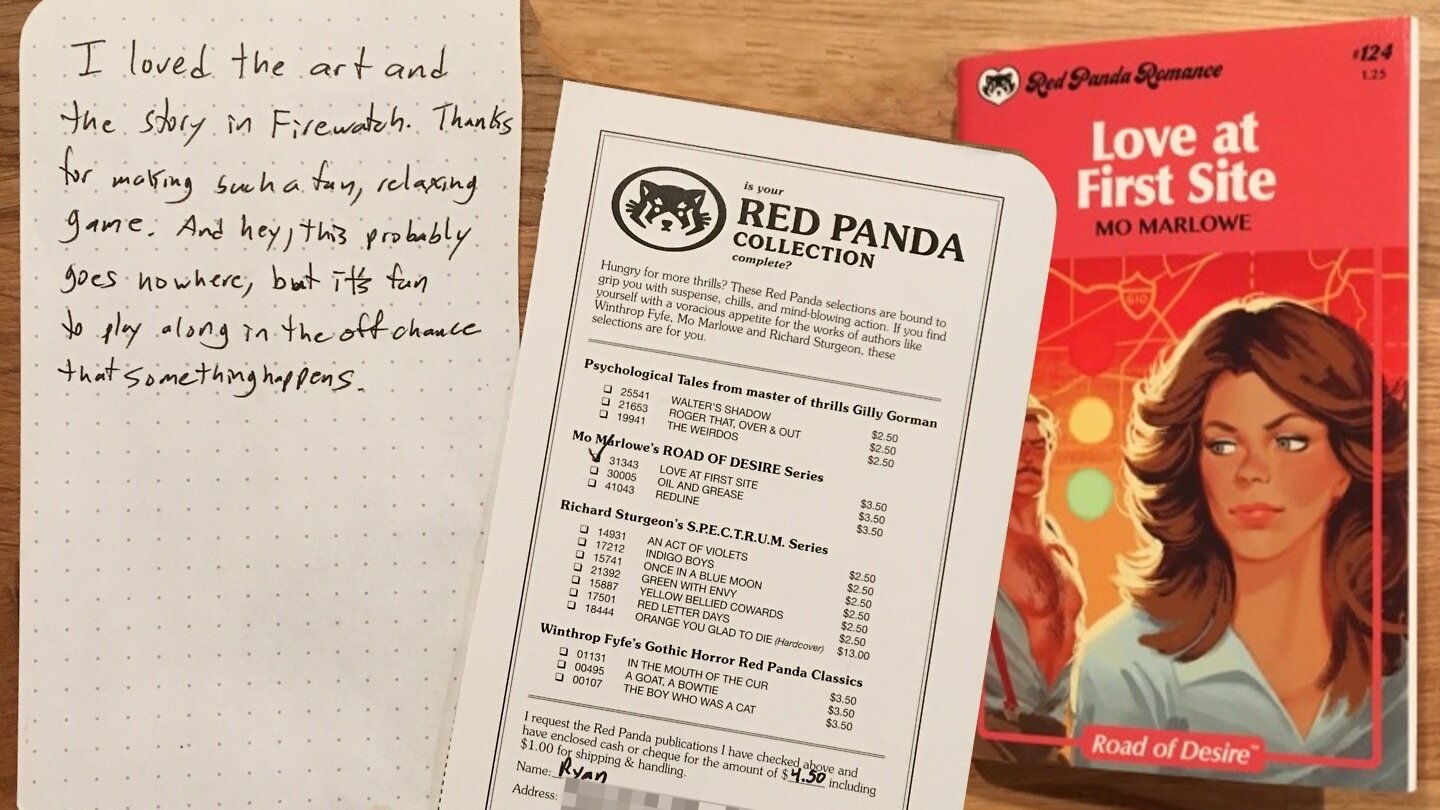 I loved the art and
the story in Firewatch. Thanks
for making such a fun, relaxing
game. And hey, this probably
goes nowhere, but it's fun
to play along in the off chance
that something happens.
is your
RED PANDA
COLLECTION
complete?
Hungry for more thrills? These Red Panda selections are bound to
grip you with suspense, chills, and mind-blowing action. If you find
yourself with a voracious appetite for the works of authors like
Winthrop Fyfe, Mo Marlowe and Richard Sturgeon, these
selections are for you.
Psychological Tales from master of thrills Gilly Gorman
25541 WALTER'S SHADOW $2.50
21653 ROGER THAT, OVER & OUT $2.50
19941 THE WEIRDOS $2.50
Mo Marlowe's ROAD OF DESIRE Series
31343 LOVE AT FIRST SITE $3.50
30005 OIL AND GREASE $3.50
41043 REDLINE $3.50
Richard Sturgeon's S.P.E.C.T.R.U.M. Series
14931 AN ACT OF VIOLETS $2.50
17212 INDIGO BOYS $2.50
15741 ONCE IN A BLUE MOON $2.50
21392 GREEN WITH ENVY $2.50
15887 YELLOW BELLIED COWARDS $2.50
17501 RED LETTER DAYS $2.50
18444 ORANGE YOU GLAD TO DIE (Hardcover) $13.00
Winthrop Fyfe's Gothic Horror Red Panda Classics
01131 IN THE MOUTH OF THE CUR $3.50
00495 A GOAT, A BOWTIE $3.50
00107 THE BOY WHO WAS A CAT $3.50
I request the Red Panda publications I have checked above and
have enclosed cash or cheque for the amount of $4.50 including
$1.00 for shipping & handling.
Name: Ryan
Address:
Red Panda Romance
$124
1.25
Love at
First Site
MO MARLOWE
610
Road of Desire™